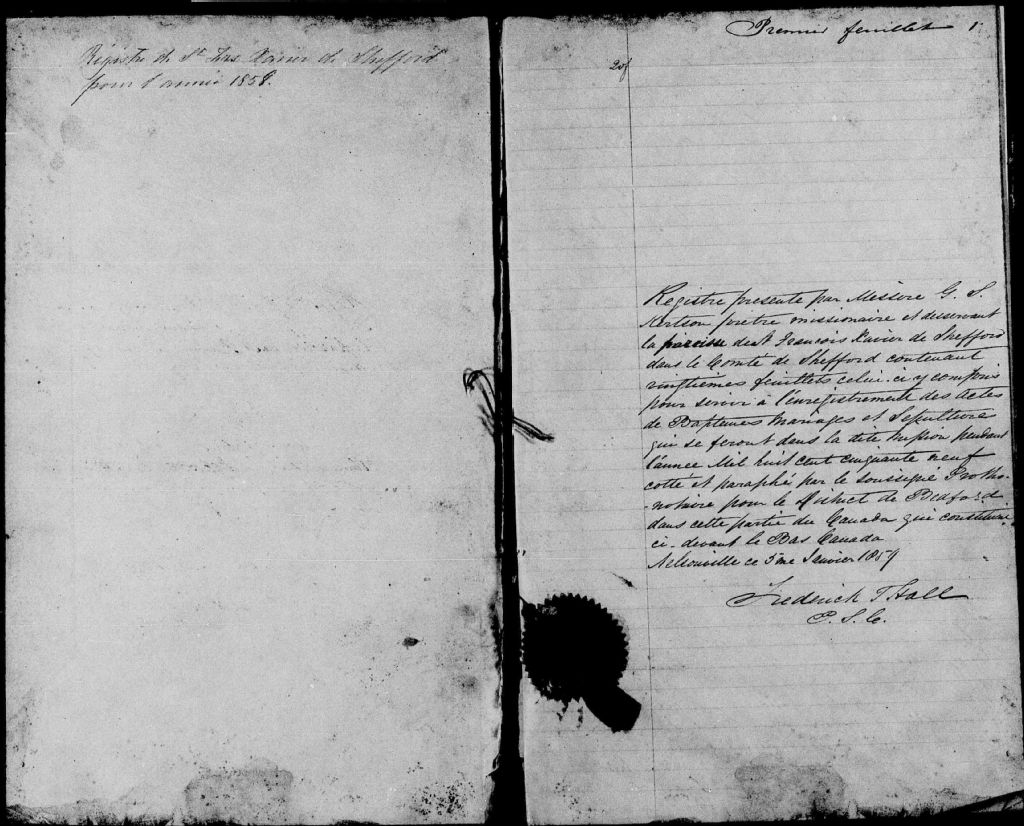 Régistre de St Frs Xavier de Shefford
pour l'année 1858.
Premier feuillet 1
20f
Registre presente par Messire G. S.
Kertson pretre missionaire et desservant
la paroisse de St Francois Xavier de Shefford
dans le Comté de Shefford contenant
vingtiemes feuillets celui-ci y compris
pour servir à l'enregistrement des Actes
de Baptemes Mariages et Sepultures
qui se feront dans la dite Mission pendant
l'année Mil huit cent cinquante neuf
cotté et paraphé par le soussigné Protho-
-notaire pour le District de Bedford
dans cette partie du Canada qui constituait
ci-devant le Bas Canada
Nelsonville ce 5me Janvier 1859
Frederick T Hall
P. S. C.